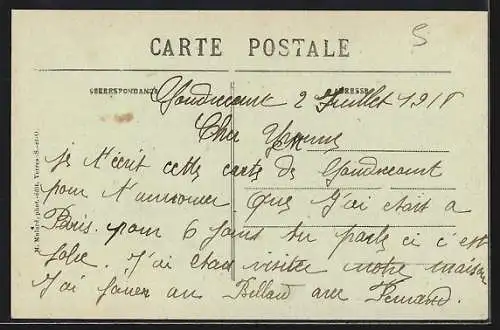 CARTE POSTALE
5
CORRESPONDANCE
ADRESSE
Gondrecourt 2 Juillet 1918
Cher
Je t'écrit cette carte de Gondrecourt
pour t'annoncer que j'ai était a
Paris. pour 6 jours tu parle ci c'est
folie. J'ai était visiter notre maison
J'ai jouer au Billard avec Fernand.